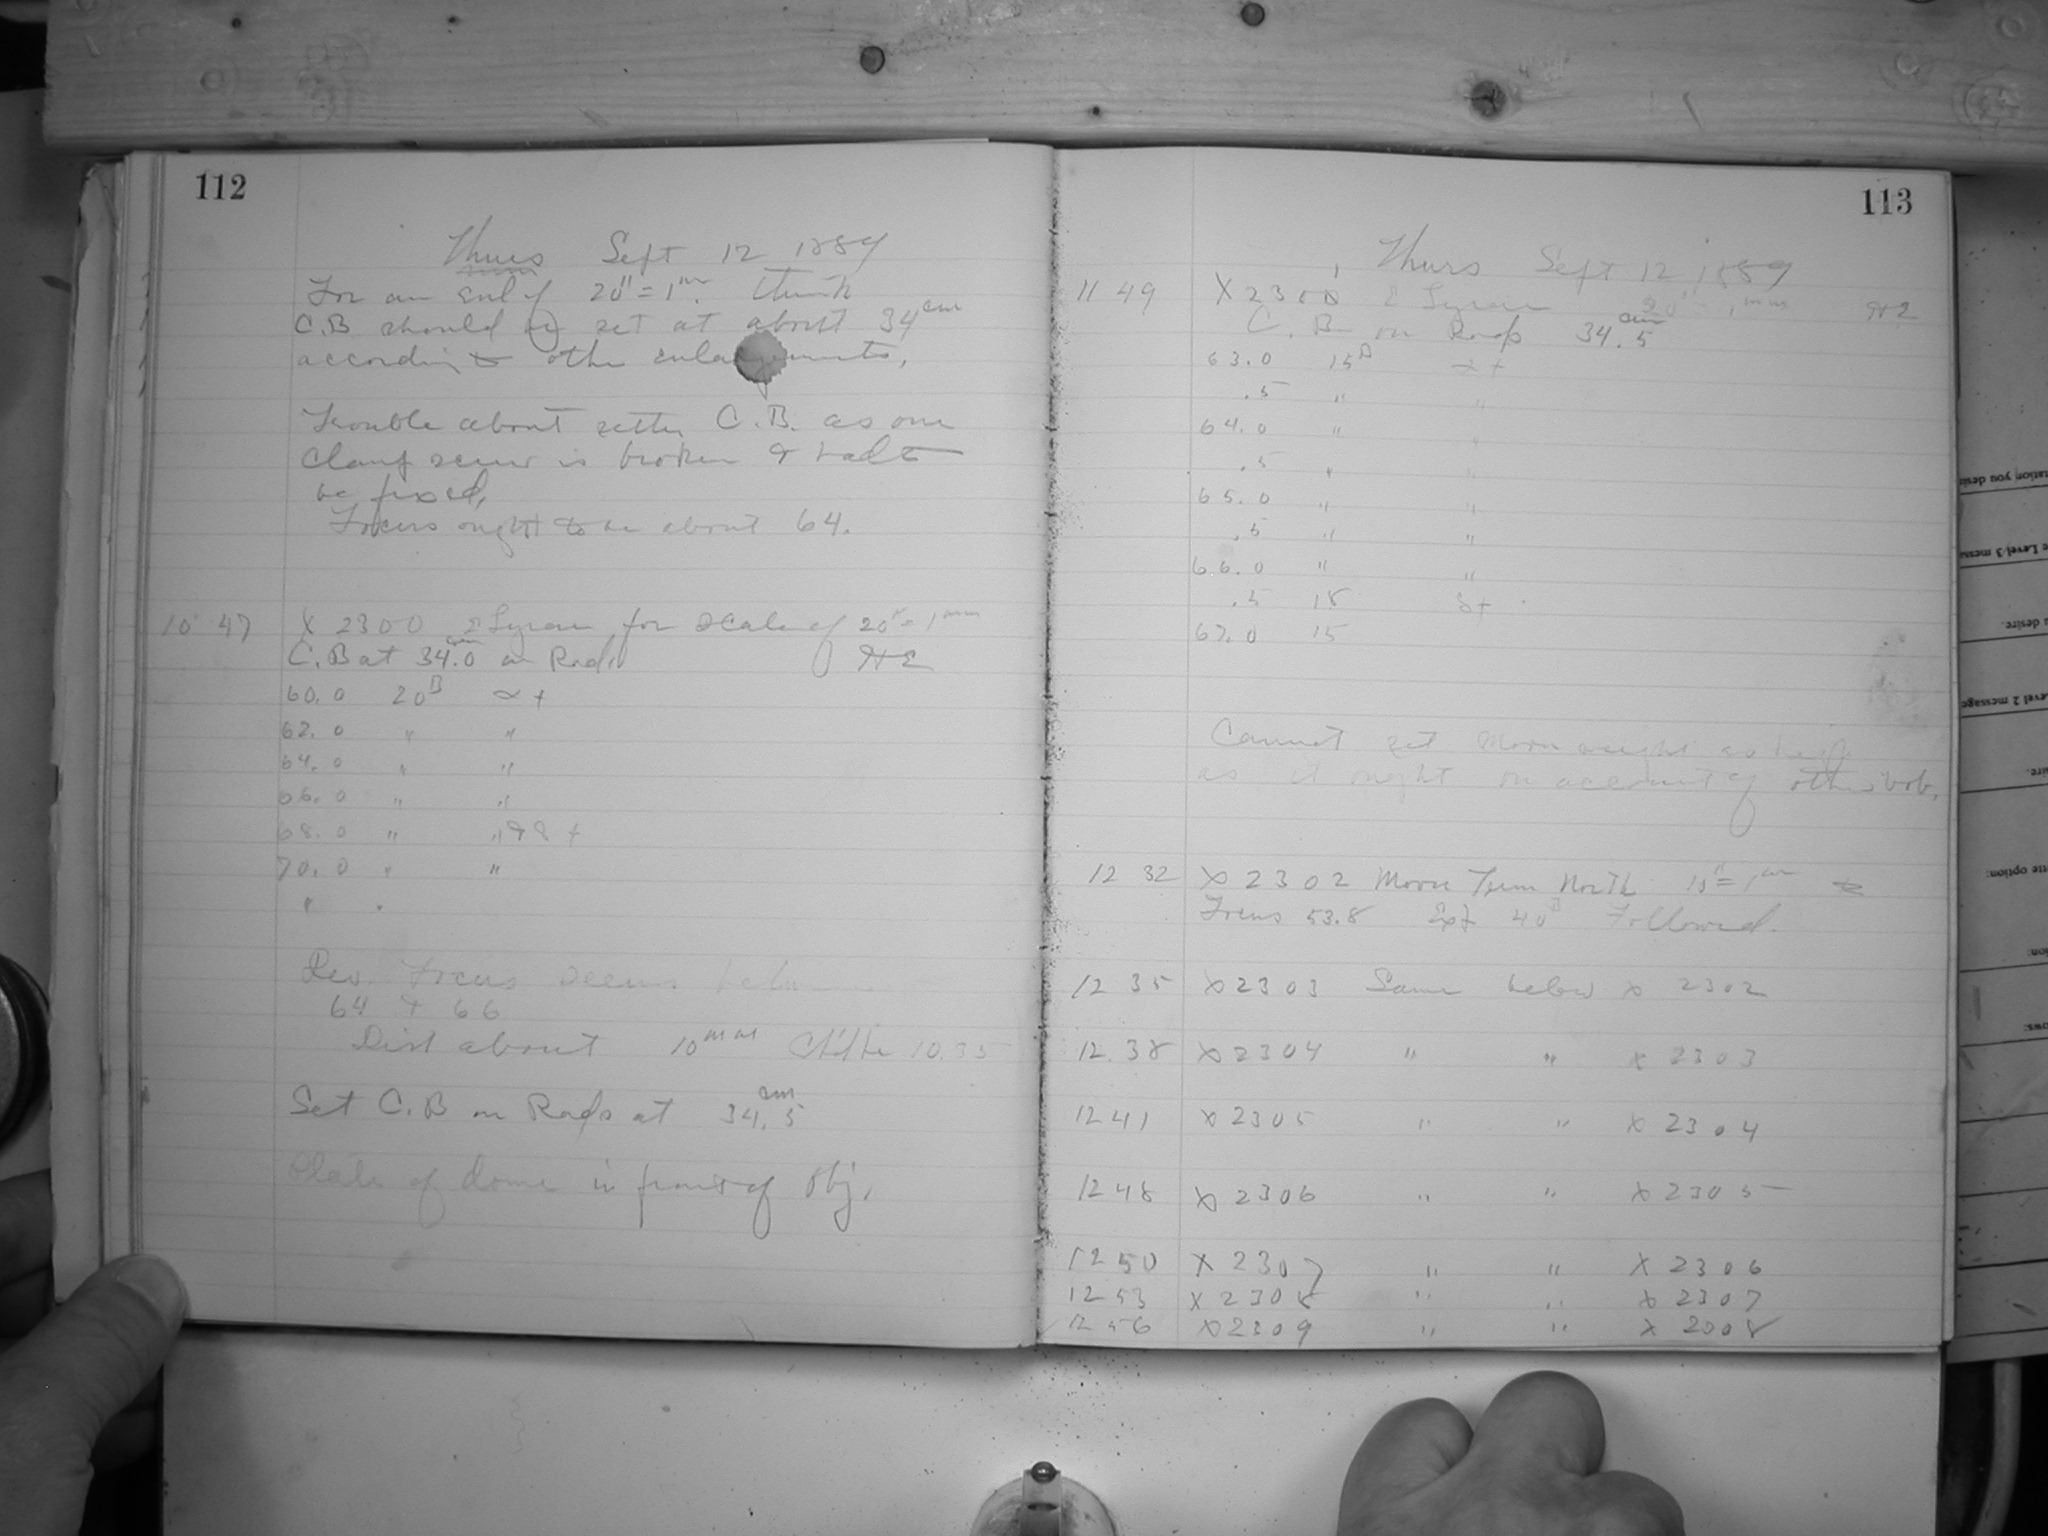 112
Thurs Sept 12 1889
For an enl of 20" = 1 mm. think
C.B should be set at about 34 cm
according to other enlargements,
Trouble about setting C.B. as one
clamp screw is broken & had to
be fixed,
Focus ought to be about 64.
10 47 X 2300 Lyrae for scale of 20" = 1 mm
C.B at 34.0 cm on Rods
60.0 20 B α +
62.0 " "
64.0 " "
66.0 " "
68.0 " " & 8 +
70.0 " "
" "
Dev. Focus seems between
64 + 66
Dist about 10 mm 10.35
Set C.B on Rods at 34.5 cm
Plate of dome in front of Obj.
113
Thurs Sept 12 1889
11 49 X 2300 Lyrae 20" = 1 mm
C. B on Rods 34.5 cm
63.0 15 B α +
.5 " "
64.0 " "
.5 " "
65.0 " "
.5 " "
66.0 " "
.5 15 8 +
67.0 15
Cannot set Moon weight as high
as it ought on account of other bob.
12 32 X 2302 Moon Term North 10" = 1 mm
Focus 53.8 Exp 40 B Followed.
12 35 X 2303 Same below X 2302
12.38 X 2304 " " X 2303
12 41 X 2305 " " X 2304
12 48 X 2306 " " X 2305
12 50 X 2307 " " X 2306
12 53 X 2308 " " X 2307
12 56 X 2309 " " X 2308